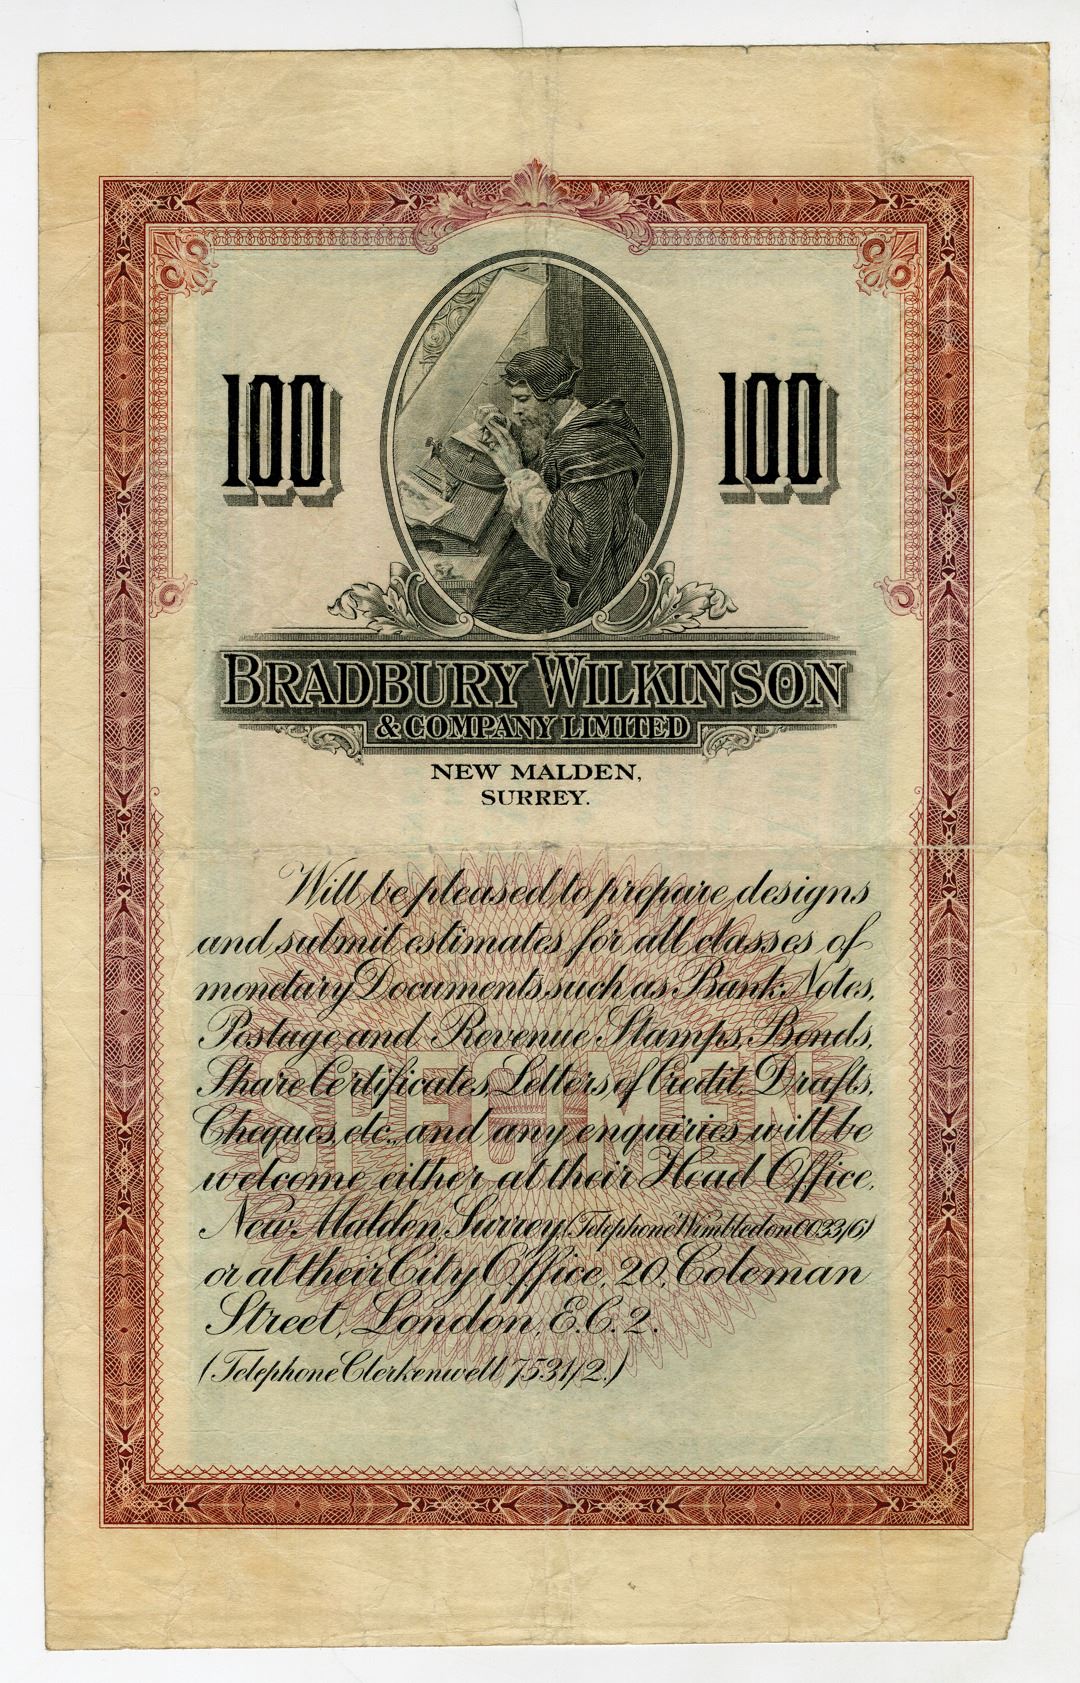 100 100
BRADBURY WILKINSON
& COMPANY LIMITED
NEW MALDEN,
SURREY.
Will be pleased to prepare designs
and submit estimates for all classes of
monetary Documents, such as Bank Notes,
Postage and Revenue Stamps, Bonds,
Share Certificates, Letters of Credit, Drafts,
Cheques, etc., and any enquiries will be
welcome either at their Head Office,
New Malden, Surrey, (Telephone Wimbledon 0033/6)
or at their City Office, 20, Coleman
Street, London, E.C. 2.
(Telephone Clerkenwell 7531/2.)
SPECIMEN